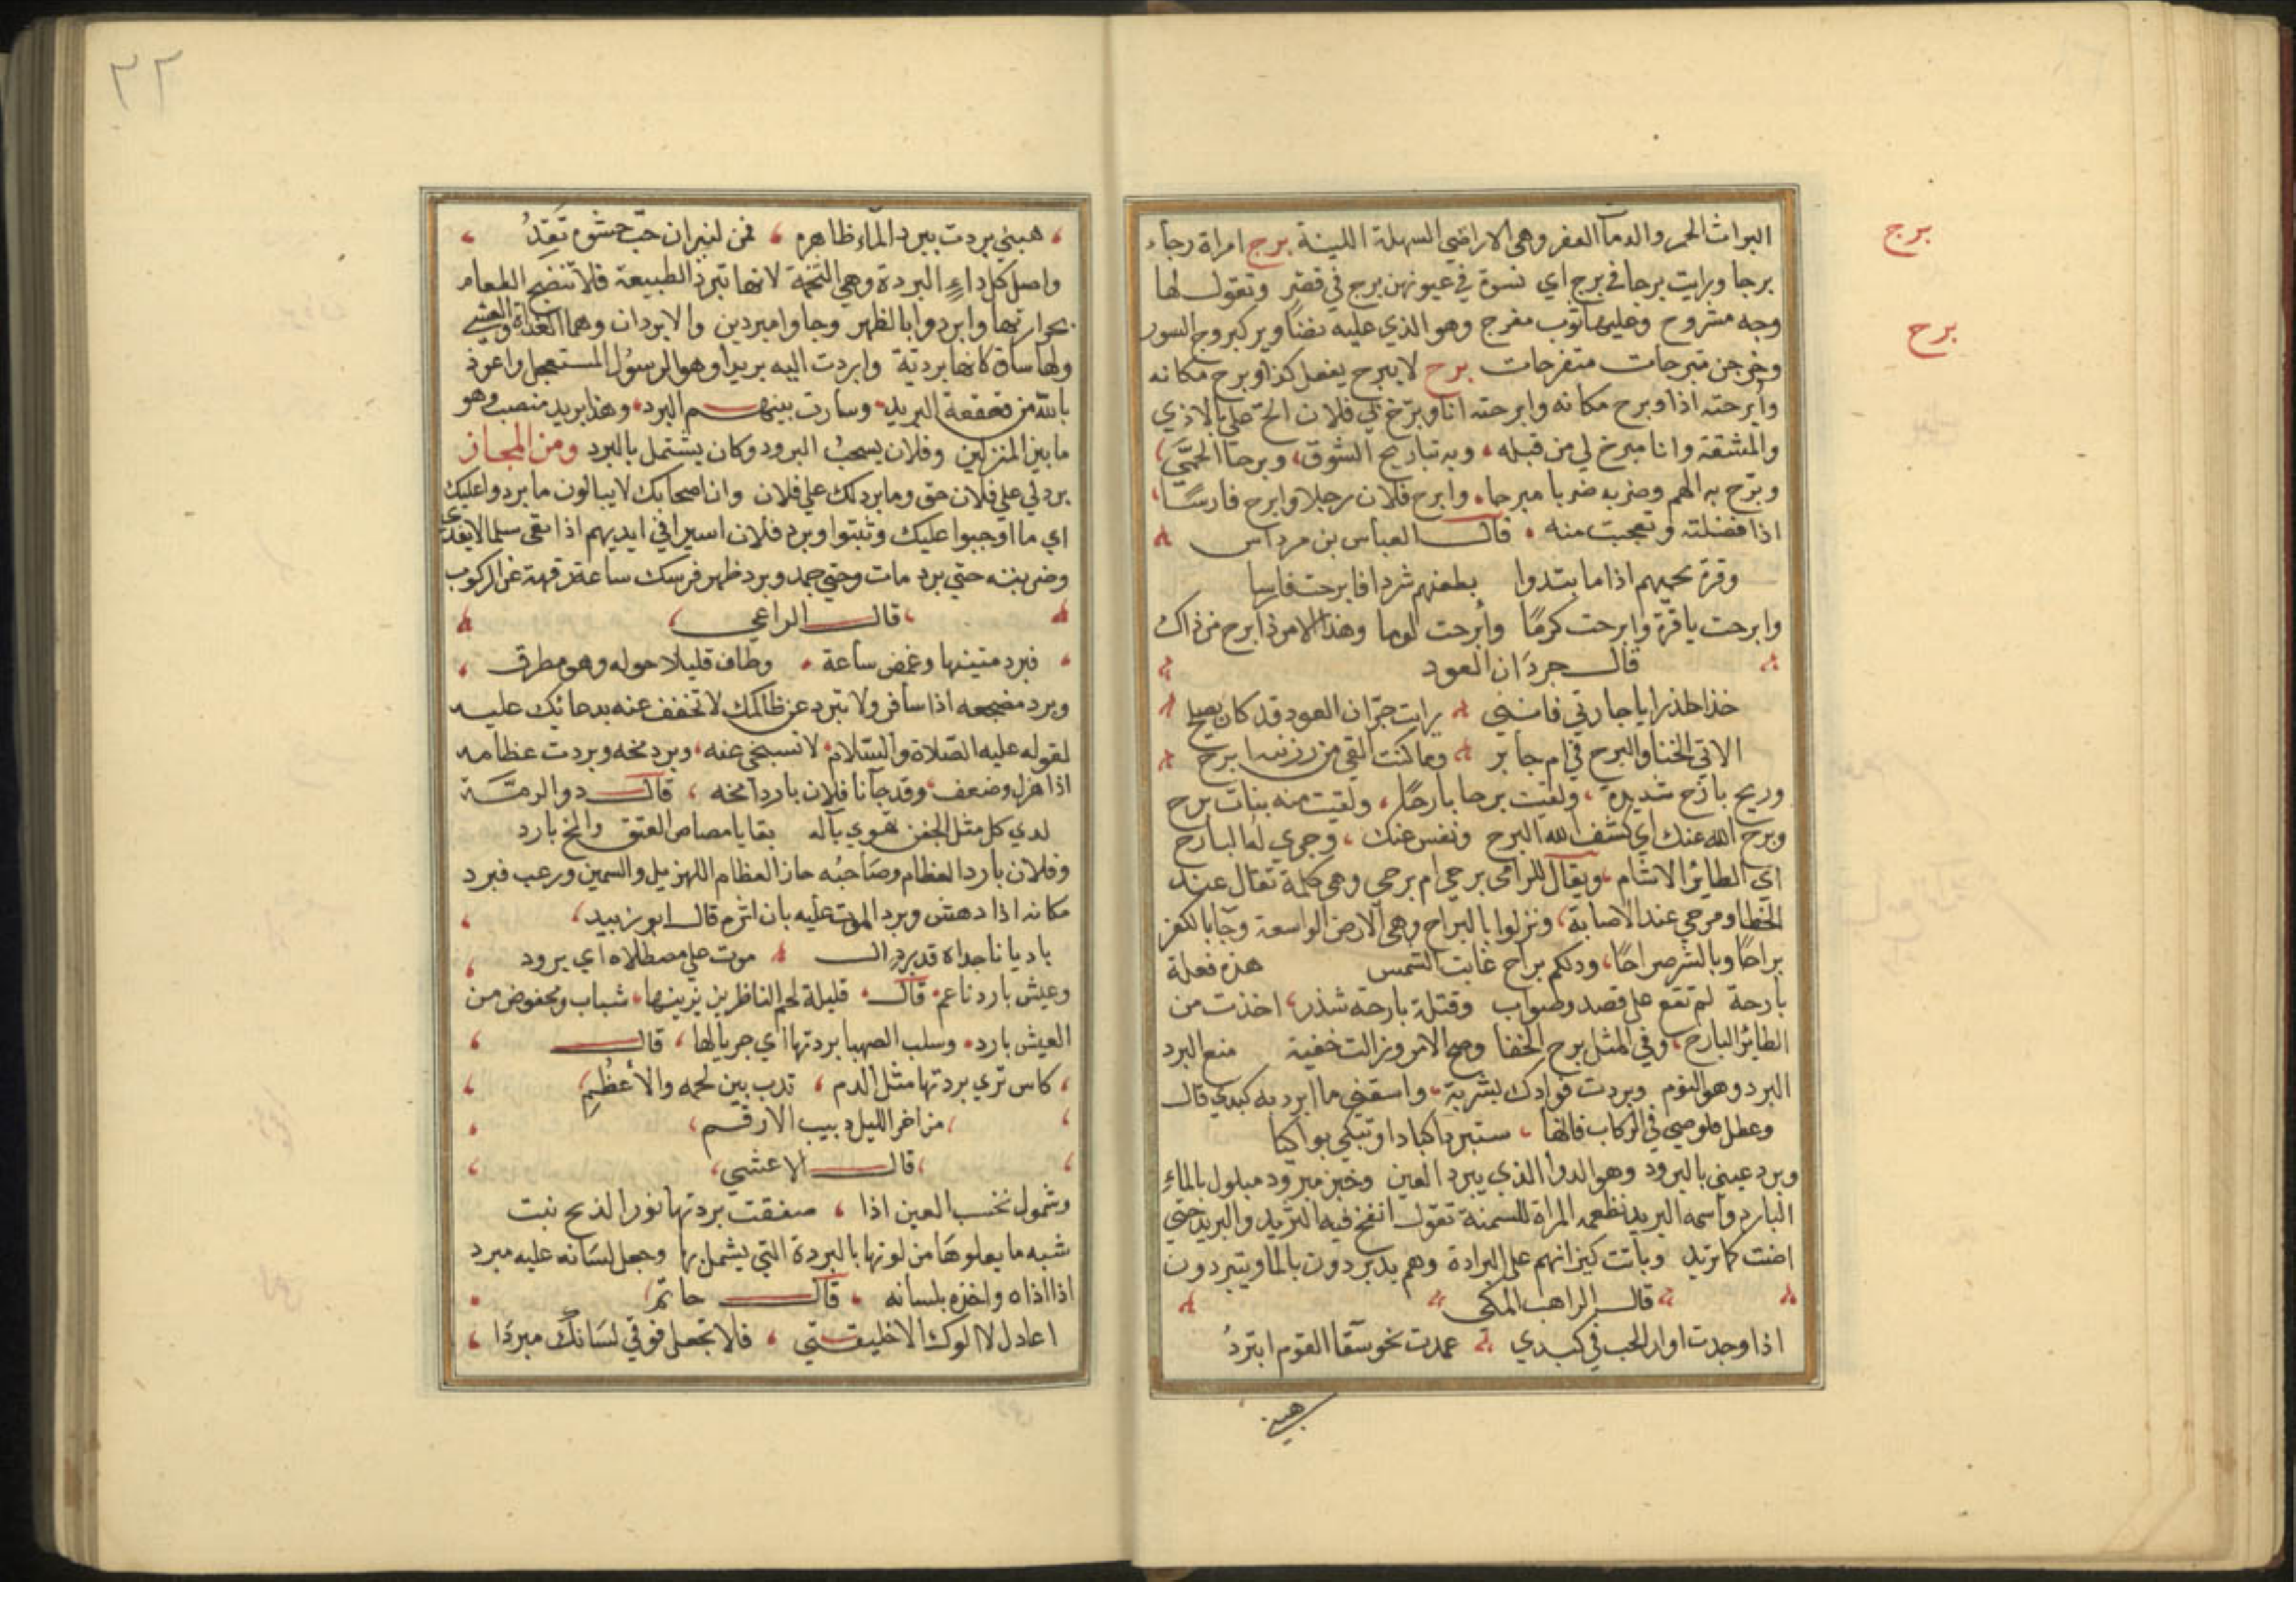 برج
البراث الحمر والدمآ العفر وهي الاراضي السهلة اللينة برج امراة زجاء
برجا ورايت برجا في برج اي نسوة في عيونهن برج في قصر وتقول لها
وجه مشروح وعليها ثوب مفرج وهو الذي عليه تصاوير كبروج السور
برح
وخرجن متبرجات متفرجات برح لا يبرح يفعل كذا وبرح مكانه
وأبرحته اذا وبرح مكانه وابرحته انا وبرّح بي فلان الحّ علي بالاذي
والمشقة وانا مبرح لي من قبله وبه تباريح الشوق وبرحا الحمَّي
وبرّح به الهم وضربه ضربا مبرحا وابرح فلان رجلا وابرح فارسًا
اذا فضلته وتعجبت منه قال العباس بن مرداس
وقرة يحميهم اذا ما يتددوا بطعنهم شزرا فابرحت فارسا
وابرحت ياقرة وابرحت كرمًا وأبرحت لوما وهذا الامر ابرح من ذاك
قال جردَان العود
خذا حذرا يا جارتي فانني رايت جرّان العود قد كان يصلح
الاقي الخنا والبرح في ام جابر وما كنت القي من رزينه ابرح
وريح بارح شديدة ولقيت برحا بارحًا ولقيت منه بنات برح
وبرح الله عنك اي كشف الله البرح ونفس عنك وجري له البارح
اي الطائر الاشام ويقال للرامي برحي ام برحي وهي كلمة تقال عند
الخطا ومرحي عند الاصابة ونزلوا بالبراح وهي الارض الواسعة وجآ بالكفر
براحًا وبالشر صراحًا ودلكم براح غابت الشمس هذه فعلة
بارحة لم تقع علي قصد وصواب وقتلة بارحة شذر اخذت من
الطائر البارح وفي المثل برح الخفا وضح الامر وزالت خفية منع البرد
البرد وهو النوم وبردت فوادك بشربة واسقني ما ابرد به كبدي قال
وعطل قلوصي في الركاب فانها ستبرد اكبادا وتبكي بواكيا
وبرد عيني بالبرود وهو الدوا الذي يبرد العين وخبز مبرود مبلول بالماء
البارد واسمه البريد تطعمه المراة للسمنة تقول انفخ فيه الثريد والبريد حتي
اضت كما تريد وباتت كيزانهم علي البرادة وهم يدبردون بالما ويتبردون
قال الراهب المكي
اذا وجدت اوار الحب في كبدي عمدت نحو سقآ القوم ابتردُ
هبني
٢٢
هبيني بردت ببرد المآء ظاهره فمن لنيران حب حشوه تَقِدُ
واصل كل داءٍ البردة وهي التخمة لانها تبرد الطبيعة فلا تنضج الطعام
بحوارتها وابردوا بالظهر وجاوا مبردين والابردان وهما الغداة والعشي
ولها ساق كانها بردية وابردت اليه بريدا وهو الرسول المستعجل واعوذ
بالله من قعقعة البريد وسارت بينهم البرد وهذا بريد منصب وهو
ما بين المنزلين وفلان يسحب البرود وكان يشتمل بالبرد ومن المجاز
برد لي علي فلان حق وما برد لك علي فلان وان اصحابك لا يبالون ما بردوا عليك
اي ما اوجبوا عليك وثبتوا وبرد فلان اسيرا في ايديهم اذا بقي سلما لا يفدي
وضربته حتي برد مات وحتي جمد وبرد ظهر فرسك ساعة رفهه عن الركوب
قال الراعي
فبرد متينها وغمض ساعة وطاف قليلا حوله وهو مطرق
وبرد مضجعه اذا سافر ولا تبرد عن ظالمك لا تخفف عنه بدعائك عليه
لقوله عليه الصّلاة والسّلام لا تسبخي عنه وبرد مخه وبردت عظامه
اذا هزل وضعف وقد جآنا فلان باردا مخه قال ذو الرمَّة
لدي كل مثل الجفن تهوي بآله بقايا مصاص العتق والمخ بارد
وفلان بارد العظام وصَاحبُه حار العظام للهزيل والسمين ورعب فبرد
مكانه اذا دهش وبرد الموت عليه بان اثره قال ابو زبيد
باديا ناجذاه قد برد الـ موت علي مصطلاه اي برود
وعيش بارد ناعم قال قليلة لحم الناظرين يزينها شباب ومخفوض من
العيش بارد وسلب الصهبا بردتها اي جريالها قال
كاس تري بردتها مثل الدم تدب بين لحمه والأعظُمِ
من اخر الليل دبيب الارقم
قال الاعشي
وشمول تحسب العين اذا صفقت بردتها نور الذبح نبت
شبه ما يعلوهَا من لونها بالبردة التي يشمل بها وجعل لسَانه عليه مبرد
اذا اذاه واخذه بلسانه قال حاتم
اعاذل لا الوك الا خليقتي فلا تجعلي فوقي لسَانك مبردَا